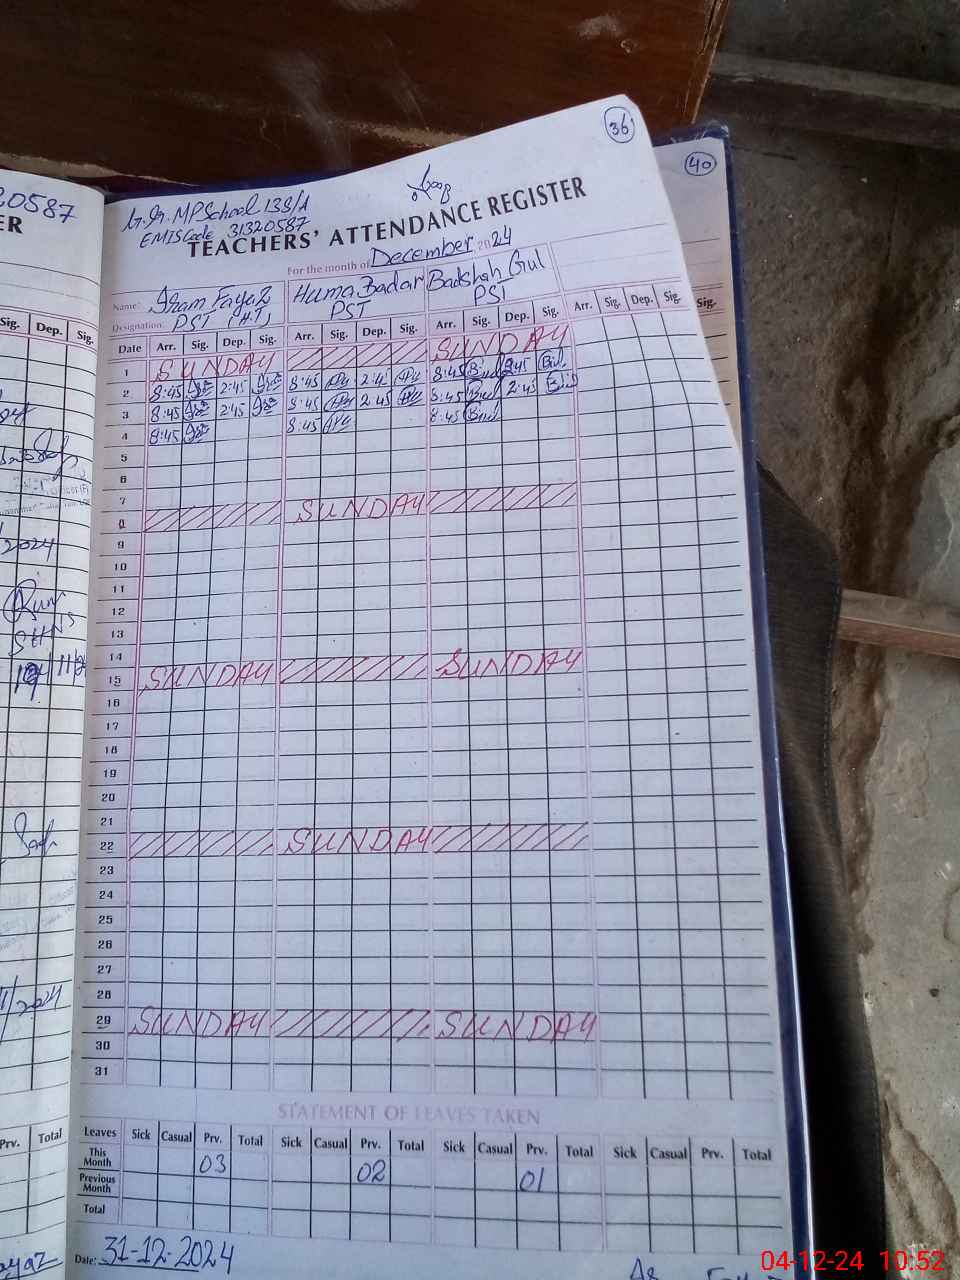 36
40
20587
G.G.MPSchool 138/A
EMIS Code 31320587
TEACHERS' ATTENDANCE REGISTER
For the month of December 2024
Name: Huma Badar Badshah Gul
Designation: PST (H.T) PST PST
Date Arr. Sig. Dep. Sig. Arr. Sig. Dep. Sig. Arr. Sig. Dep. Sig. Arr. Sig. Dep. Sig.
1 SUNDAY SUNDAY
2 8:45 2:45 8:45 2:45 8:45 2:45
3 8:45 2:45 8:45 2:45 8:45 2:45
4 8:45 8:45 8:45
5
6
7
8 SUNDAY
9
10
11
12
13
14
15 SUNDAY SUNDAY
16
17
18
19
20
21
22 SUNDAY
23
24
25
26
27
28
29 SUNDAY SUNDAY
30
31
STATEMENT OF LEAVES TAKEN
Leaves Sick Casual Prv. Total Sick Casual Prv. Total Sick Casual Prv. Total Sick Casual Prv. Total
This Month 03 02 01
Previous Month
Total
Date: 31-12-2024
Sig. Dep. Sig.
2024
Prv. Total
04-12-24 10:52